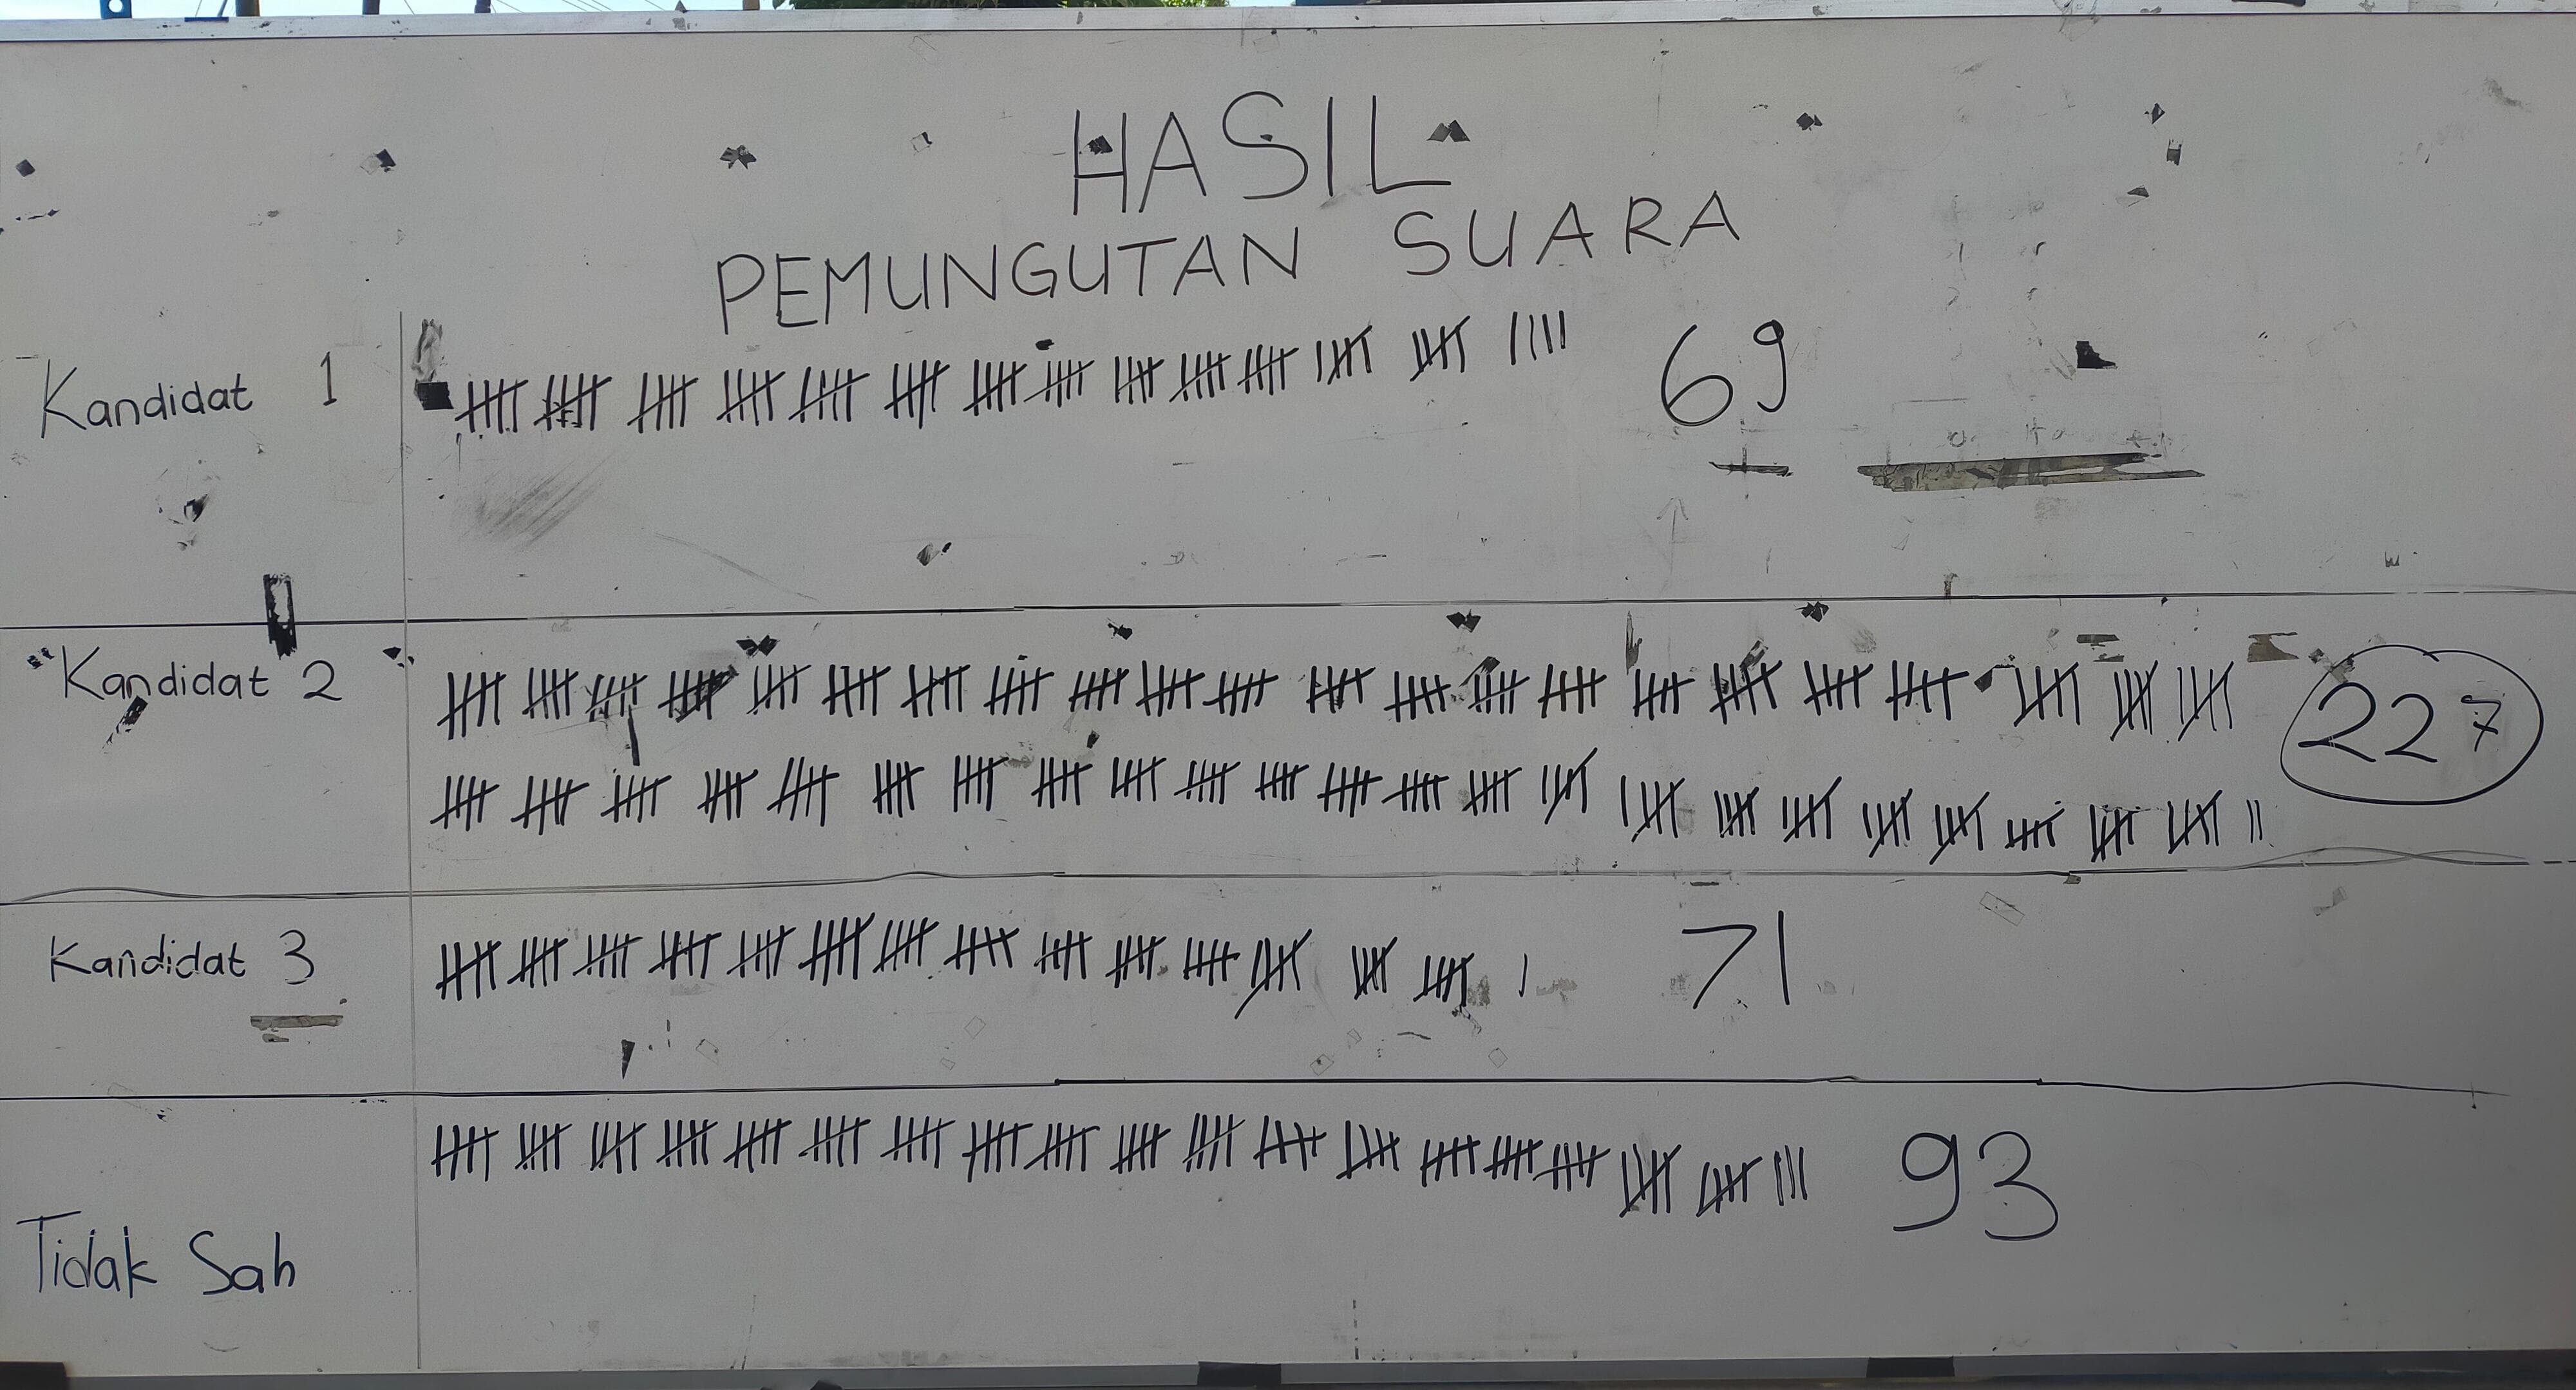 HASIL
PEMUNGUTAN SUARA
Kandidat 1 69
Kandidat 2 227
Kandidat 3 71
Tidak Sah 93